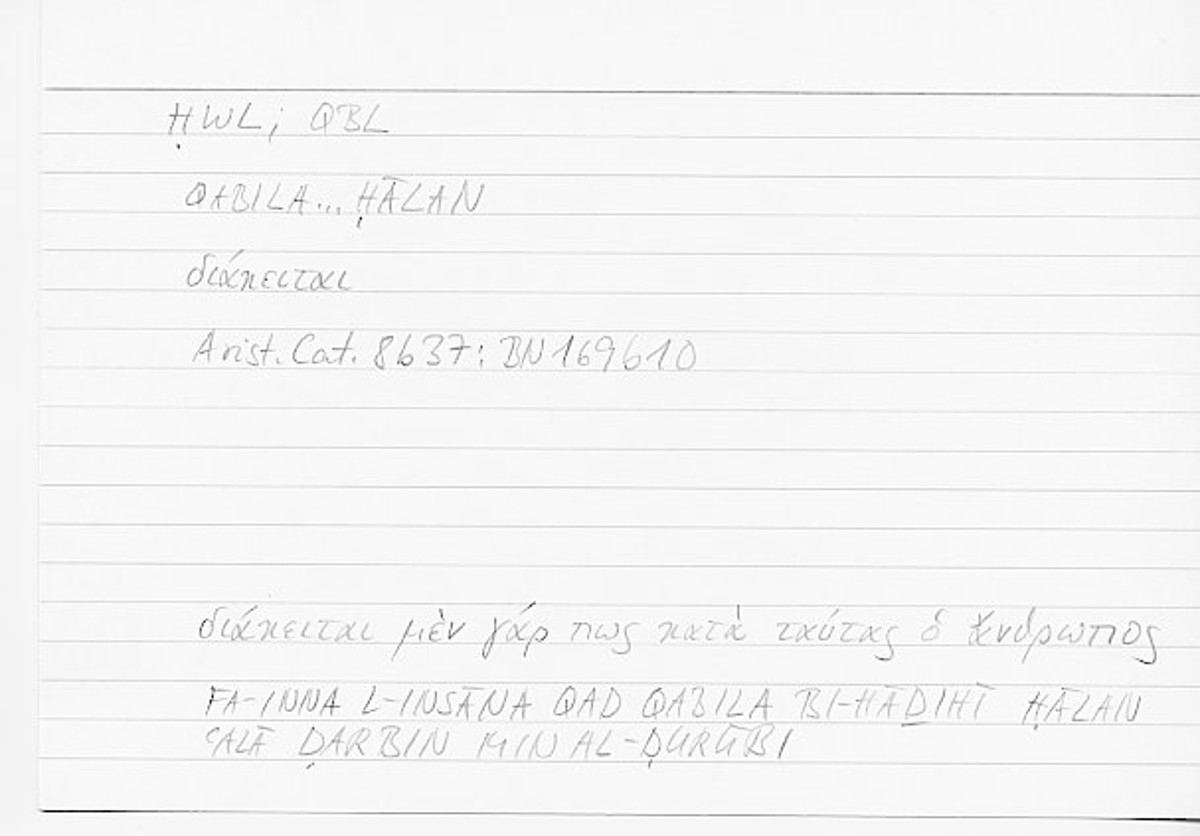 ḤWL; QBL
QABILA... ḤĀLAN
διάκειται
Arist. Cat. 8b37; BN169b10
διάκειται μὲν γάρ πως κατὰ ταύτας ὁ ἄνθρωπος
FA-INNA L-INSĀNA QAD QABILA BI-HĀḎIHĪ ḤĀLAN
ʿALĀ ḌARBIN MIN AL-ḌURŪBI